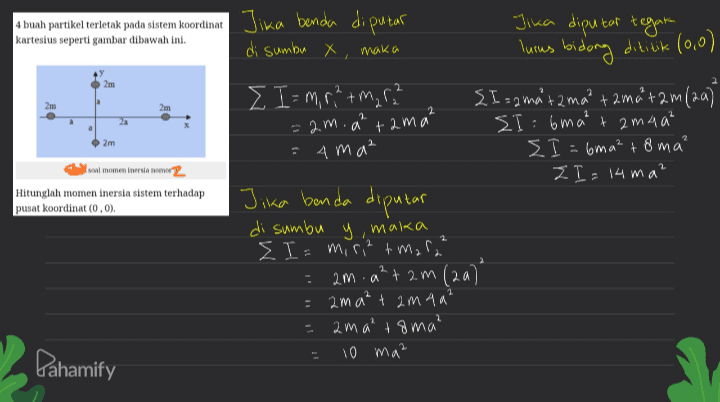 4 buah partikel terletak pada sistem koordinat
kartesius seperti gambar dibawah ini.
y
2m
a
2m
2m
a
2a
x
a
2m
soal momen inersia nomor 2
Hitunglah momen inersia sistem terhadap
pusat koordinat (0 , 0).
Jika benda diputar
di sumbu x, maka
Σ I = m₁r₁² + m₂r₂²
= 2m.a² + 2ma²
= 4 ma²
Jika benda diputar
di sumbu y, maka
Σ I = m₁r₁² + m₂r₂²
= 2m.a² + 2m (2a)²
= 2ma² + 2m4a²
= 2ma² + 8ma²
= 10 ma²
Jika diputar tegak
lurus bidang dititik (0,0)
ΣI = 2ma² + 2ma² + 2ma² + 2m(2a)²
ΣI = 6ma² + 2m4a²
ΣI = 6ma² + 8ma²
ΣI = 14ma²
Pahamify